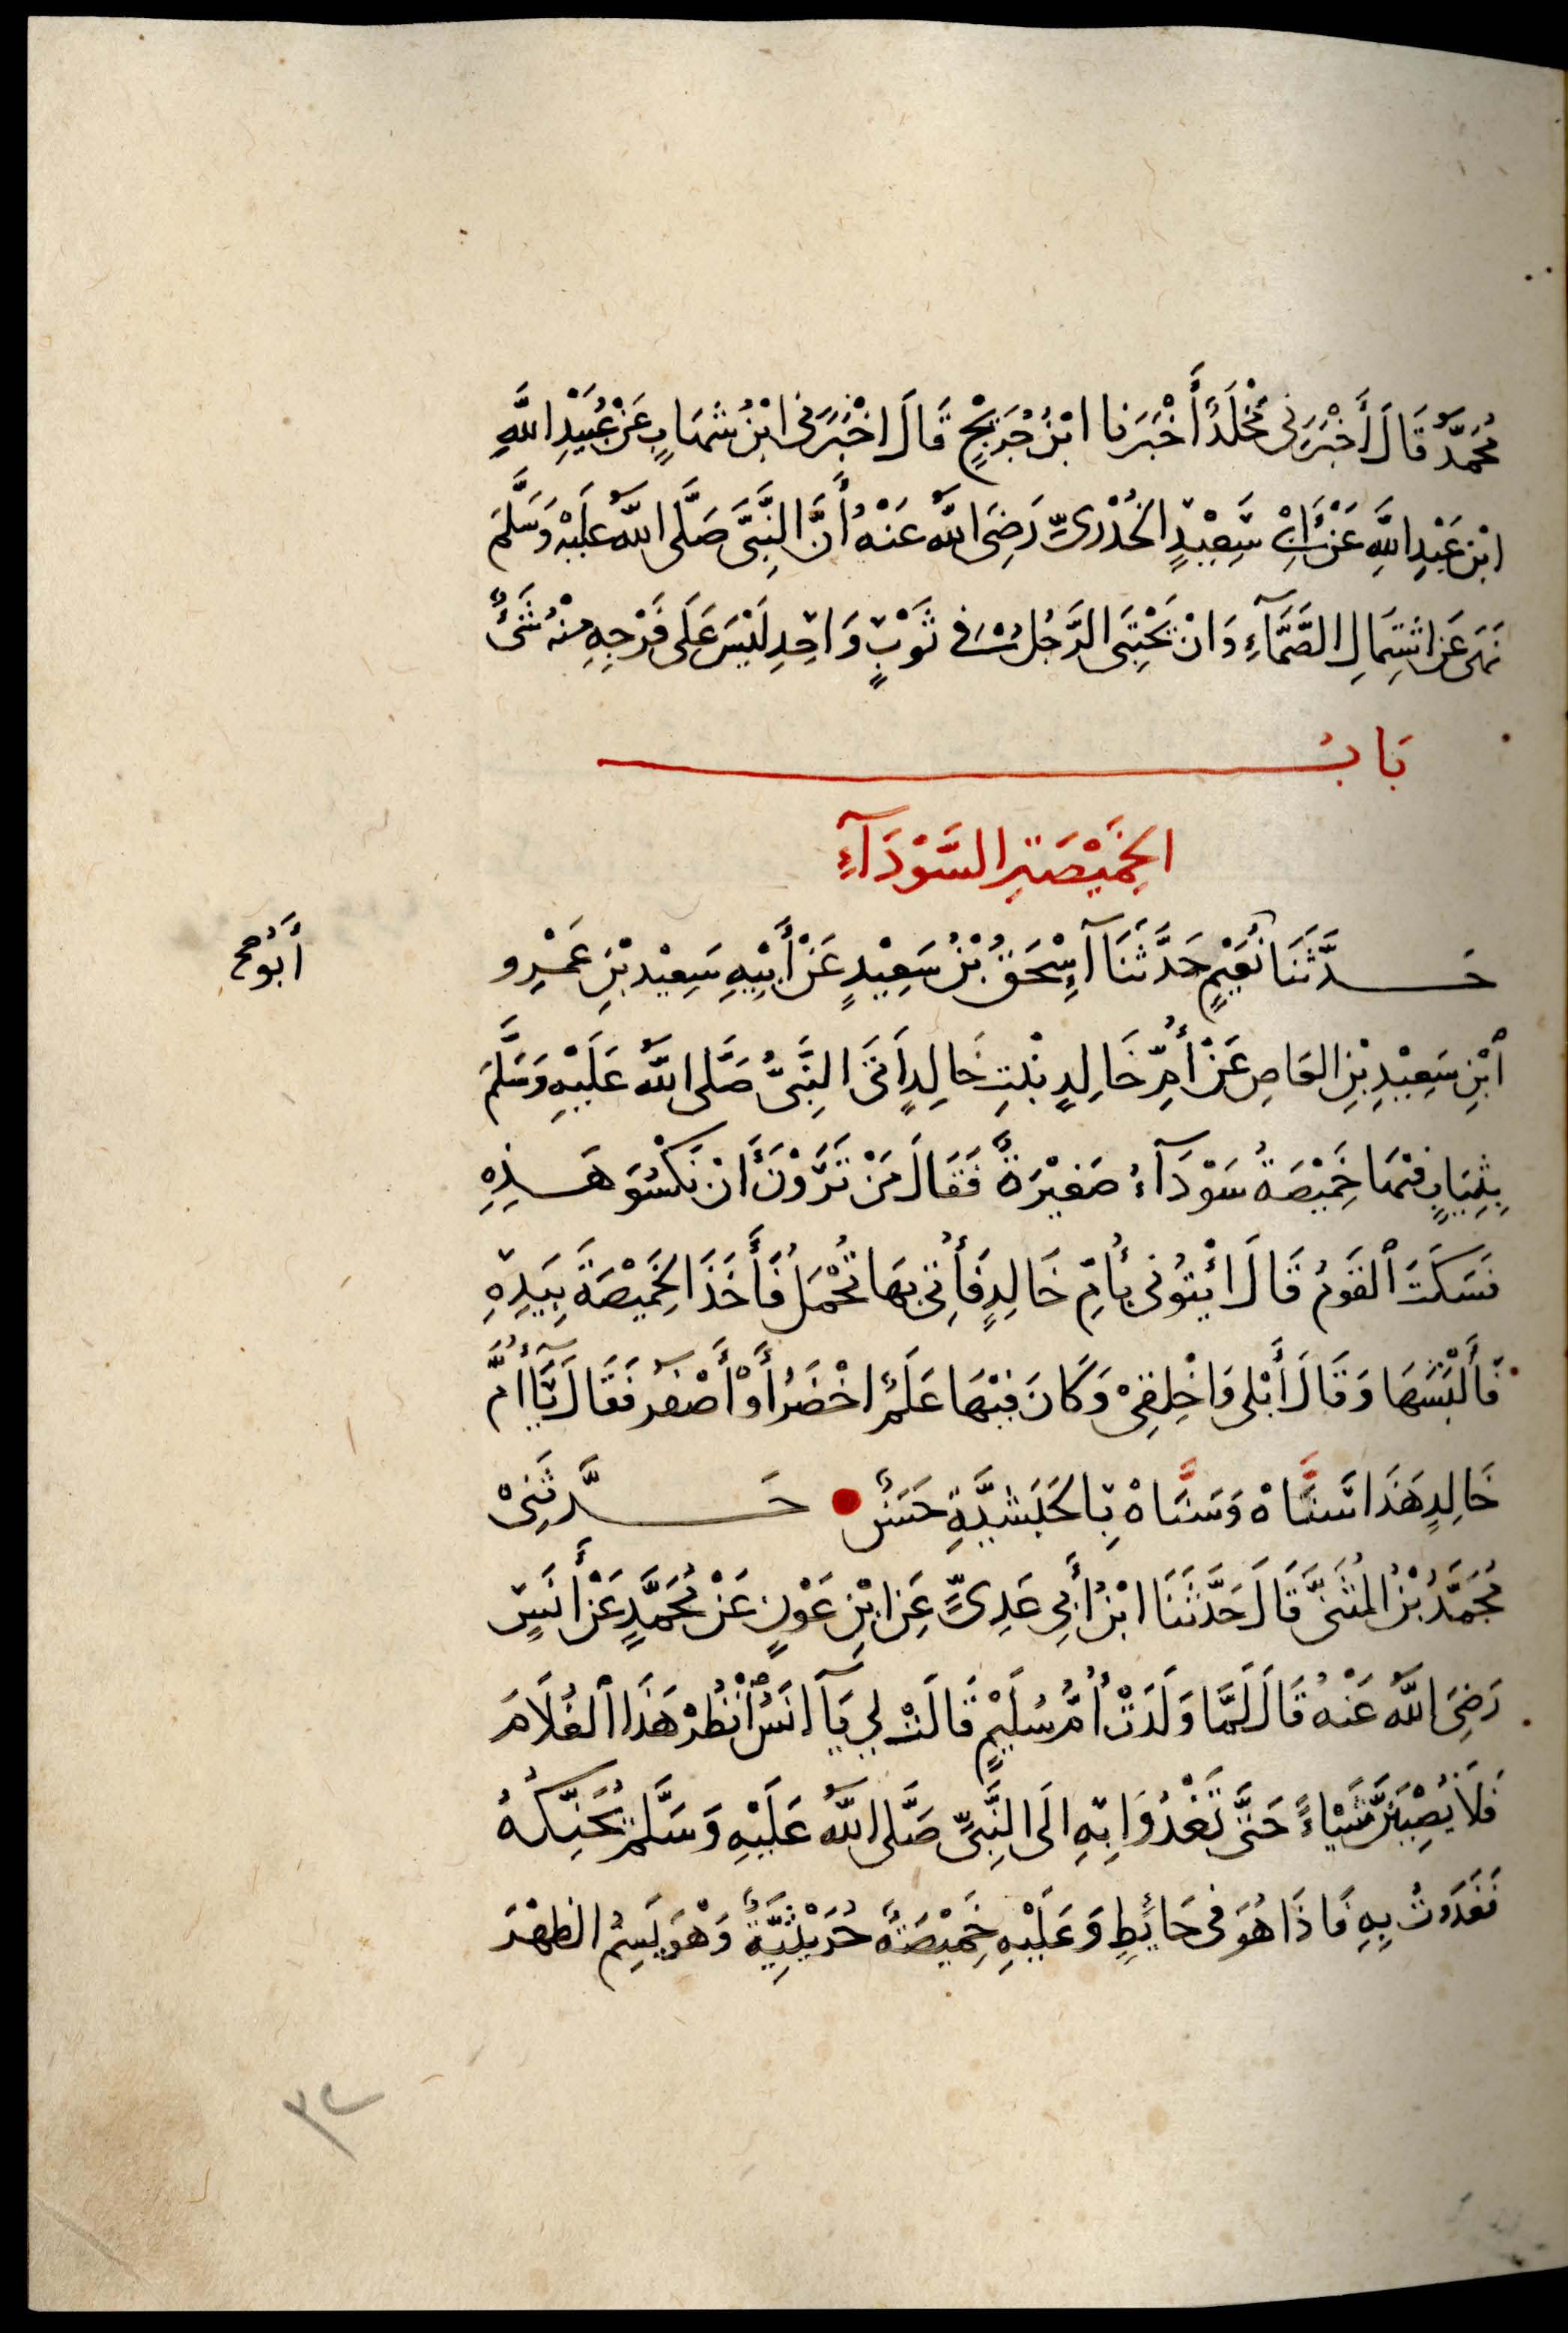 مُحَمَّدٌ قَالَ أَخْبَرَنِي مَخْلَدٌ أَخْبَرَنا ابْنُ جُرَيْجٍ قَالَ اخْبَرَنِى ابْنُ شَهَابٍ عَنْ عُبَيْدِ اللَّهِ
ابْنِ عَبْدِ اللَّهِ عَنْ أَبِى سَعِيْدٍ الخُدْرِىِّ رَضِىَ اللَّهُ عَنْهُ أَنَّ النَّبِىَّ صَلَّى اللَّهُ عَلَيْهِ وَسَلَّمَ
نَهَى عَنِ اشْتِمَالِ الصَّمَّآءِ وَانْ يَحْتَبِىَ الرَّجُلُ فى ثَوْبٍ وَاحِدٍ لَيْسَ عَلَى فَرْجِهِ مِنْهُ شَىْءٌ
بَابُ
الخَمِيْصَةِ السَّوْدَآءِ
حَدَّثَنَا نُعَيْمٍ حَدَّثَنَآ إِسْحَقُ بْنُ سَعِيْدٍ عَنْ أَبِيْهِ سَعِيْدِ بْنِ عَمْرِو
أَبُو صح
ٱبْنِ سَعِيْدِ بْنِ العَاصِ عَنْ أُمِّ خَالِدٍ بْنتِ خَالِدٍ اَتَى النَّبِىُّ صَلَّى اللَّهُ عَلَيْهِ وَسَلَّمَ
بِثِيَابٍ فِيْهَا خَمِيْصَةٌ سَوْدَآءُ صَغِيْرَةٌ فَقَالَ مَنْ تَرَوْنَ أَنْ نَكْسُوَ هَذِهِ
فَسَكَتَ ٱلقَوْمُ قَالَ ائْتُونى بِأُمِّ خَالِدٍ فَأُتِىَ بِهَا تُحْمَلُ فَأَخَذَ الخَمِيْصَةَ بِيَدِهِ
فَأَلْبَسَهَا وَقَالَ أَبْلِى وَاخْلِقِىْ وَكَانَ فِيْهَا عَلَمٌ اخْضَرُ أَوْ أَصْفَرُ فَقَالَ يَآ أُمَّ
خَالِدٍ هَذَا سَنَّاهْ وَسَنَّاهْ بِالحَبَشِيَّةِ حَسَنٌ حَدَّثَنِىْ
مُحَمَّدُ بْنُ المُثَنَّى قَالَ حَدَّثَنَا ابْنُ أَبِي عَدِىٍّ عَنِ ابْنِ عَوْنٍ عَنْ مُحَمَّدٍ عَنْ أَنَسٍ
رَضِىَ اللَّهُ عَنْهُ قَالَ لَمَّا وَلَدَتْ أُمُّ سُلَيْمٍ قَالَتْ لِي يَآ انَسُ ٱنْظُرْ هَذَا ٱلغُلَامَ
فَلَا يُصِيْبَنَّ شَيْاءً حَتَّى تَغْدُوَا بِهِ الَى النَّبِىِّ صَلَّى اللَّهُ عَلَيْهِ وَسَلَّمَ يُحَنِّكُهُ
فَغَدَوْتُ بِهِ فَاذَا هُوَ فى حَائِطٍ وَعَلَيْهِ خَمِيْصَةٌ حُرَيْثِيَّةٌ وَهْوَ يَسِمُ الظهْرَ